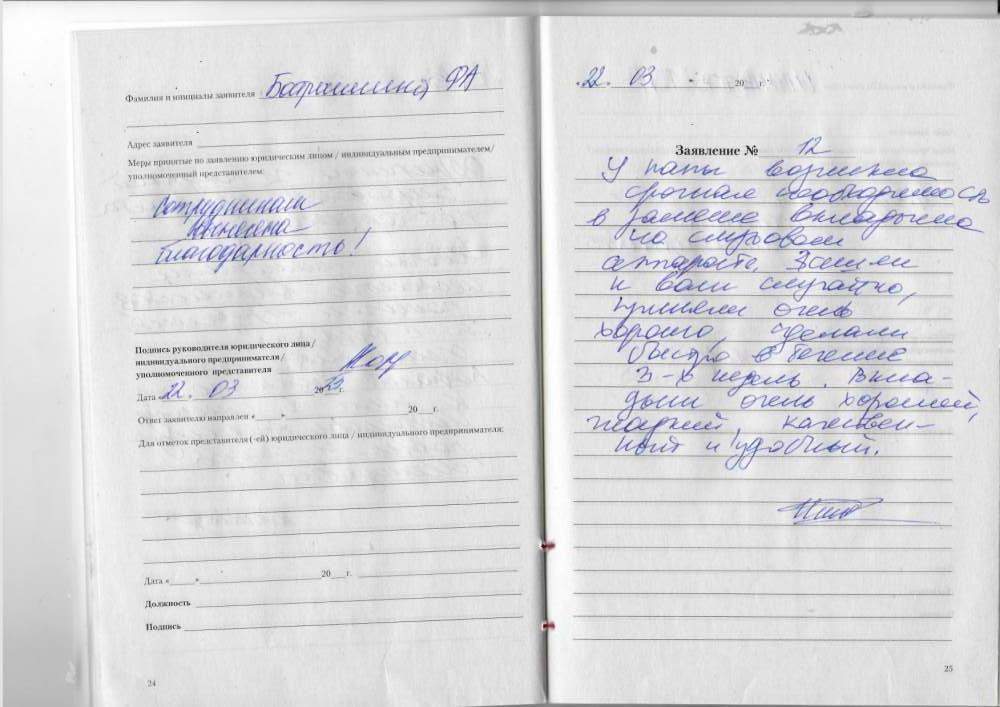 Фамилия и инициалы заявителя ФА
Адрес заявителя
Меры принятые по заявлению юридическим лицом / индивидуальным предпринимателем/
уполномоченный представителем:
Сотрудникам
вынесена
благодарность!
Подпись руководителя юридического лица /
индивидуального предпринимателя /
уполномоченного представителя
Дата «22. 03 20 23 г.
Ответ заявителю направлен «____»____20___г.
Для отметок представителя (-ей) юридического лица / индивидуального предпринимателя:
Дата «_____»____20___г.
Должность
Подпись
24
«22. 03 20 г.
Заявление № 12
У папы возникла
срочная необходимость
в замене вкладыша
на слуховом
аппарате. Зашли
к вам случайно,
приняли очень
хорошо, сделали
быстро в течение
3-х недель. Вкла-
дыш очень хороший,
гладкий, качествен-
ный и удобный.
25